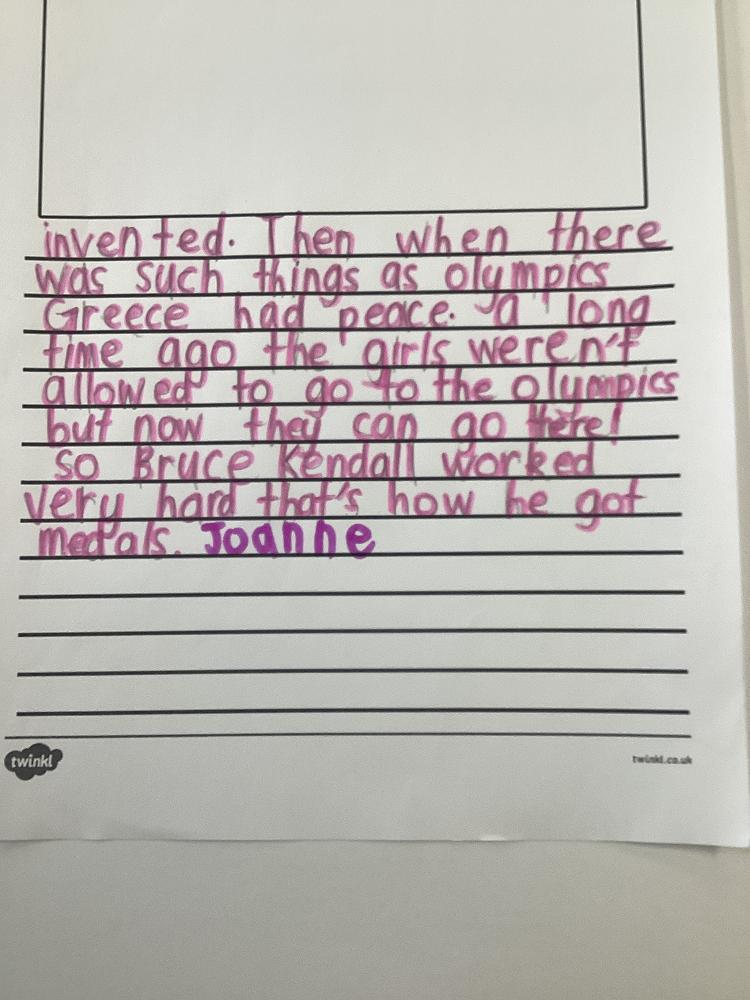 invented. Then when there
was such things as olympics
Greece had peace. a long
time ago the girls weren't
allowed to go to the olympics
but now they can go there!
so Bruce Kendall worked
very hard that's how he got
medals. Joanne
twinkl
twinkl.co.uk